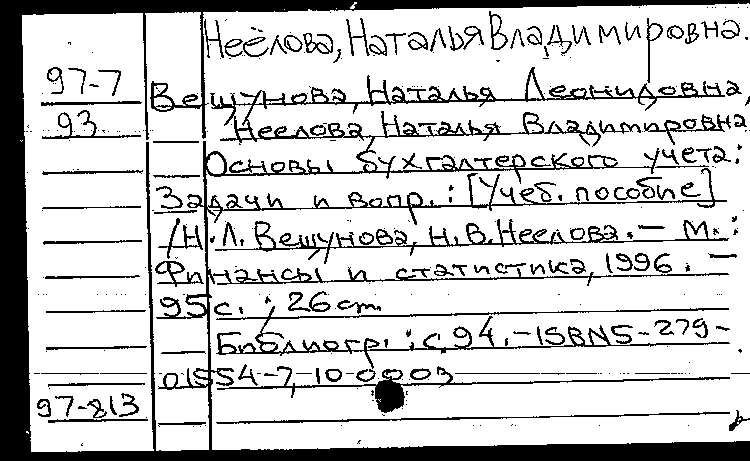 Неёлова, Наталья Владимировна.
97-7
Вещунова, Наталья Леонидовна,
93
Неелова, Наталья Владимировна
Основы бухгалтерского учета:
Задачи и вопр. : [Учеб. пособие]
/Н.Л. Вещунова, Н.В. Неелова. — М. :
Финансы и статистика, 1996. —
95 с. ; 26 cm
Библиогр. : с. 94. - ISBN 5-279-
01554-7, 10-0003
97-813